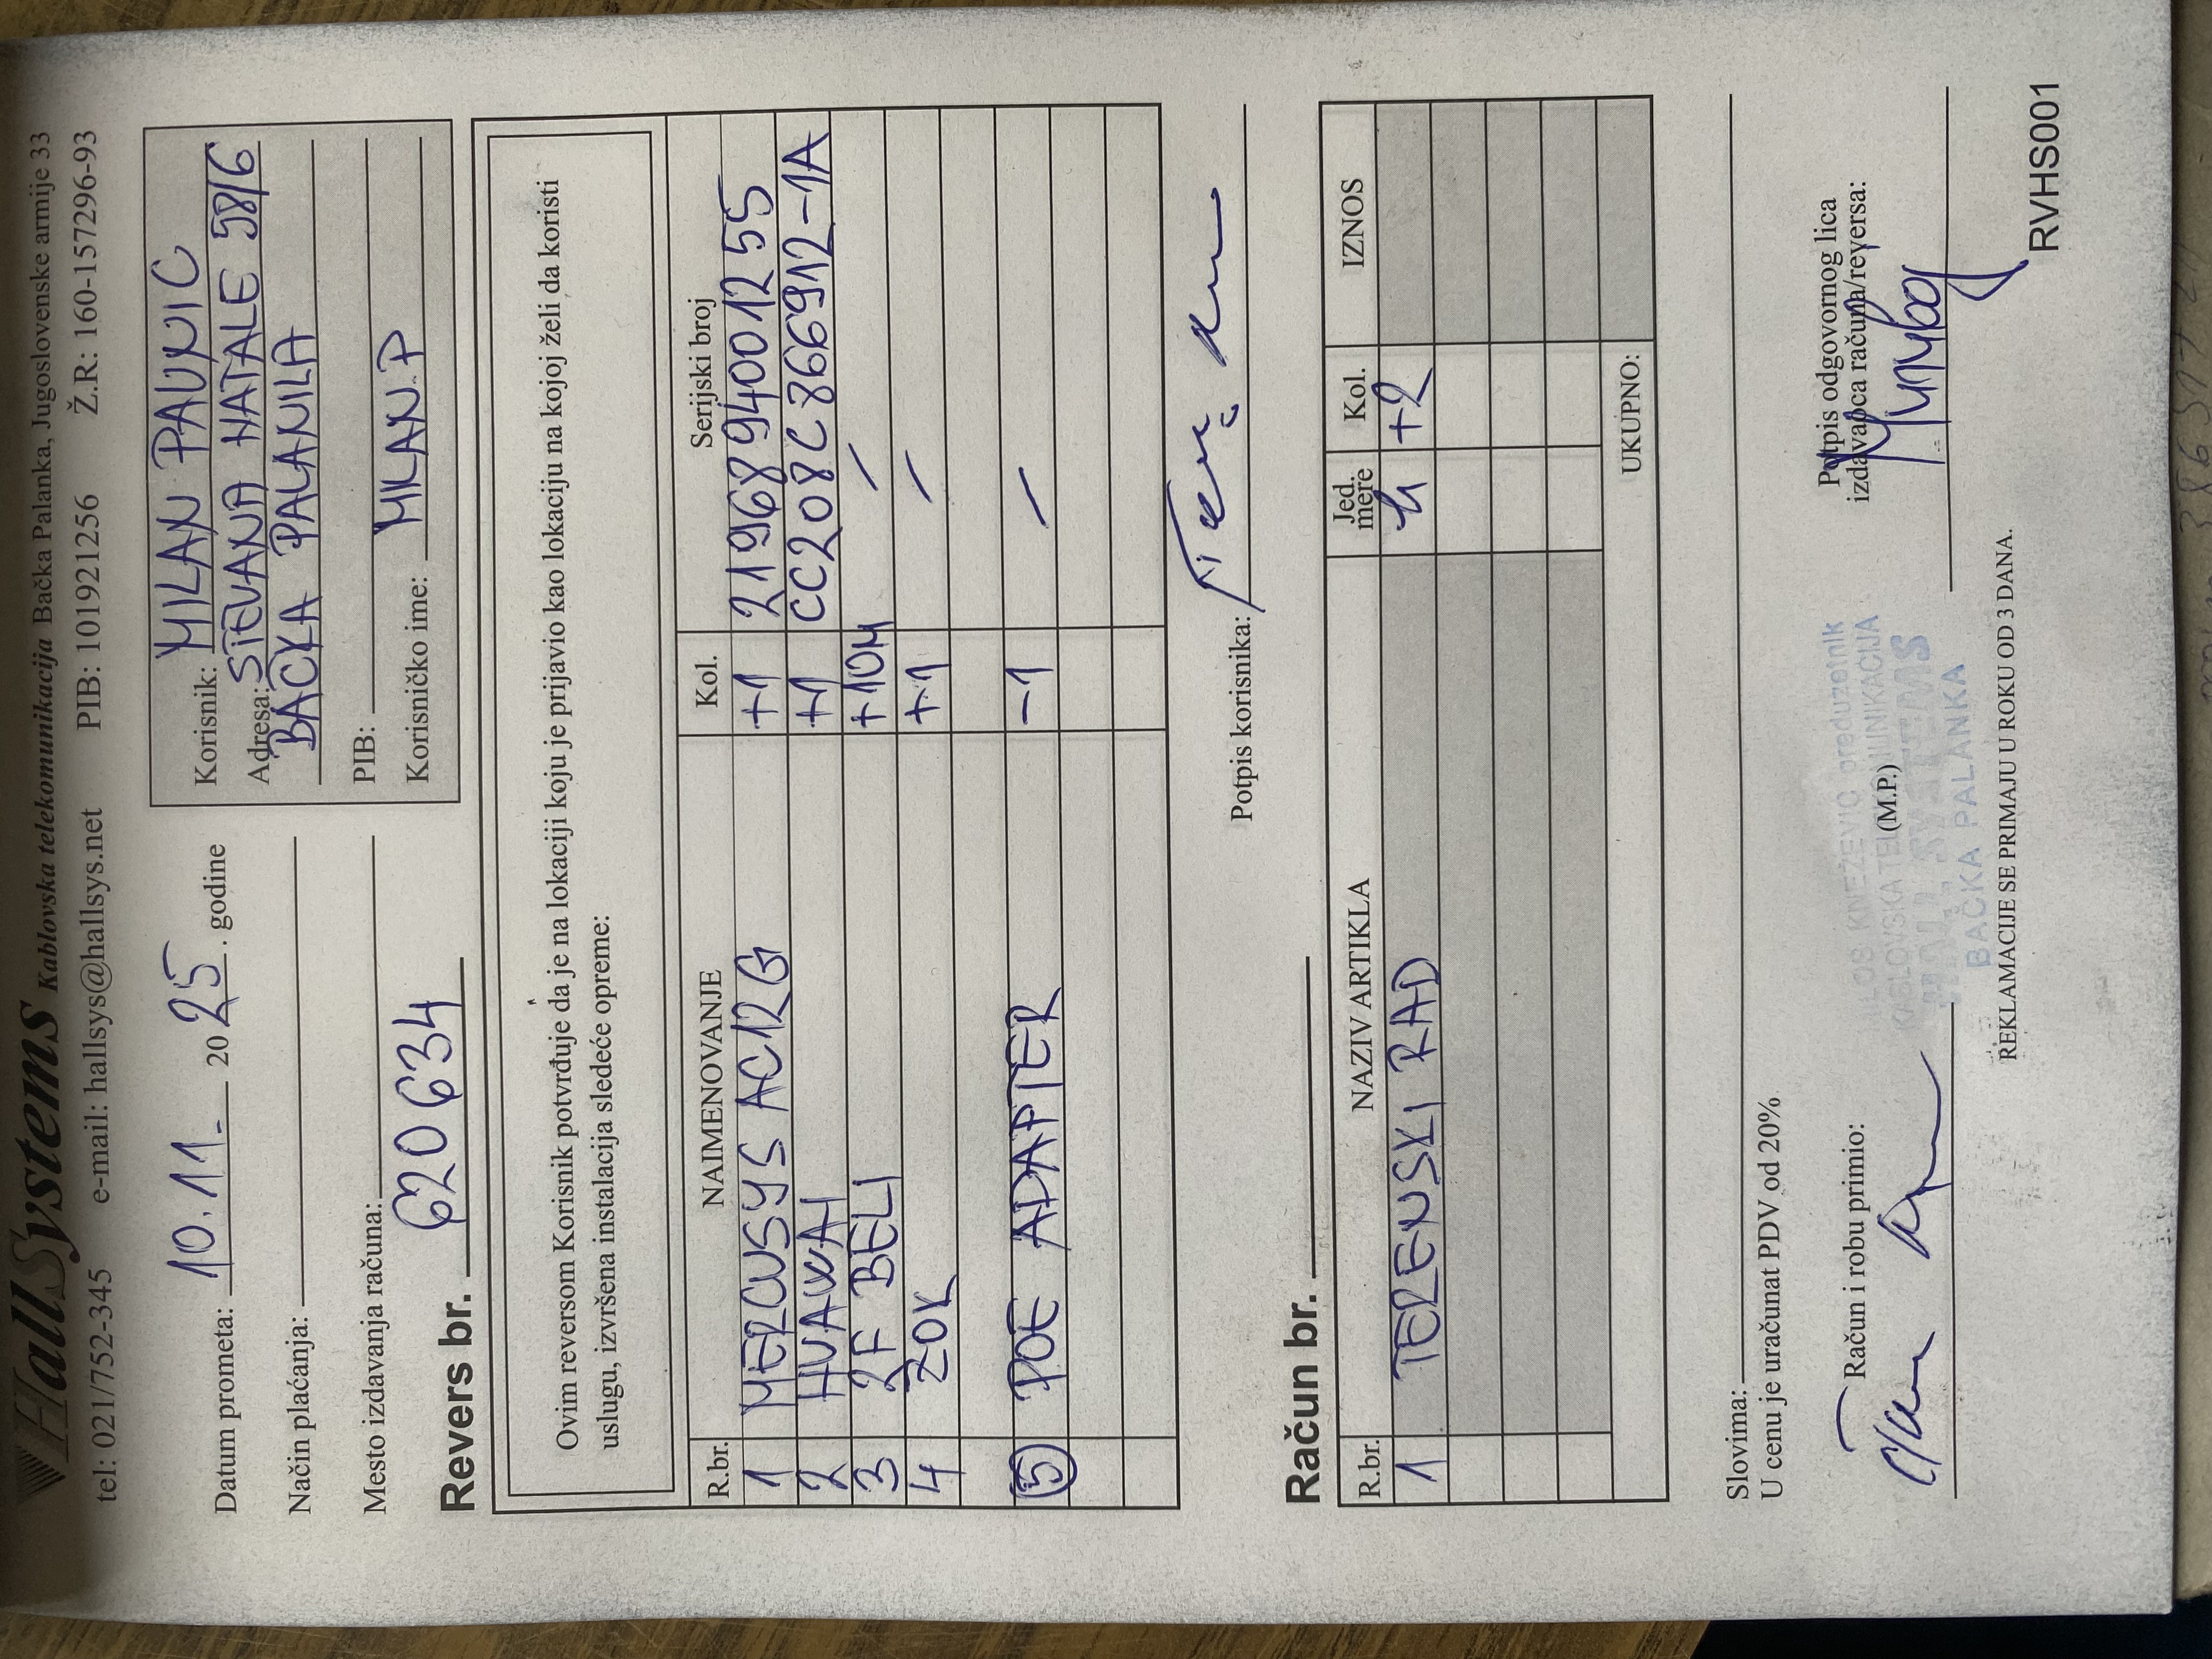 HallSystems Kablovska telekomunikacija Bačka Palanka, Jugoslovenske armije 33
tel: 021/752-345 e-mail: hallsys@hallsys.net PIB: 101921256 Ž.R: 160-157296-93
Datum prometa: 10.11- 20 25. godine
Način plaćanja:
Mesto izdavanja računa:
Korisnik: MILAN PAUNIC
Adresa: STEVANA HATALE 58/6
BACKA PALANKA
PIB:
Korisničko ime: MILAN.P
Revers br. 620634
Ovim reversom Korisnik potvrđuje da je na lokaciji koju je prijavio kao lokaciju na kojoj želi da koristi
uslugu, izvršena instalacija sledeće opreme:
R.br. NAIMENOVANJE Kol. Serijski broj
1 MERCUSYS AC12G +1 2196894001255
2 HUAWAI +1 CC208C866912-1A
3 2F BELI +10M /
4 ZOK +1 /
5 POE ADAPTER -1 /
Potpis korisnika:
Račun br.
R.br. NAZIV ARTIKLA Jed. mere Kol. IZNOS
1 TERENSKI RAD h +2
UKUPNO:
Slovima:
U cenu je uračunat PDV od 20%
Račun i robu primio:
(M.P.)
Potpis odgovornog lica
izdavaoca računa/reversa:
KNEZEVIC preduzetnik
KABLOVSKA TELEKOMUNIKACIJA
HALL SYSTEMS
BAČKA PALANKA
REKLAMACIJE SE PRIMAJU U ROKU OD 3 DANA.
RVHS001